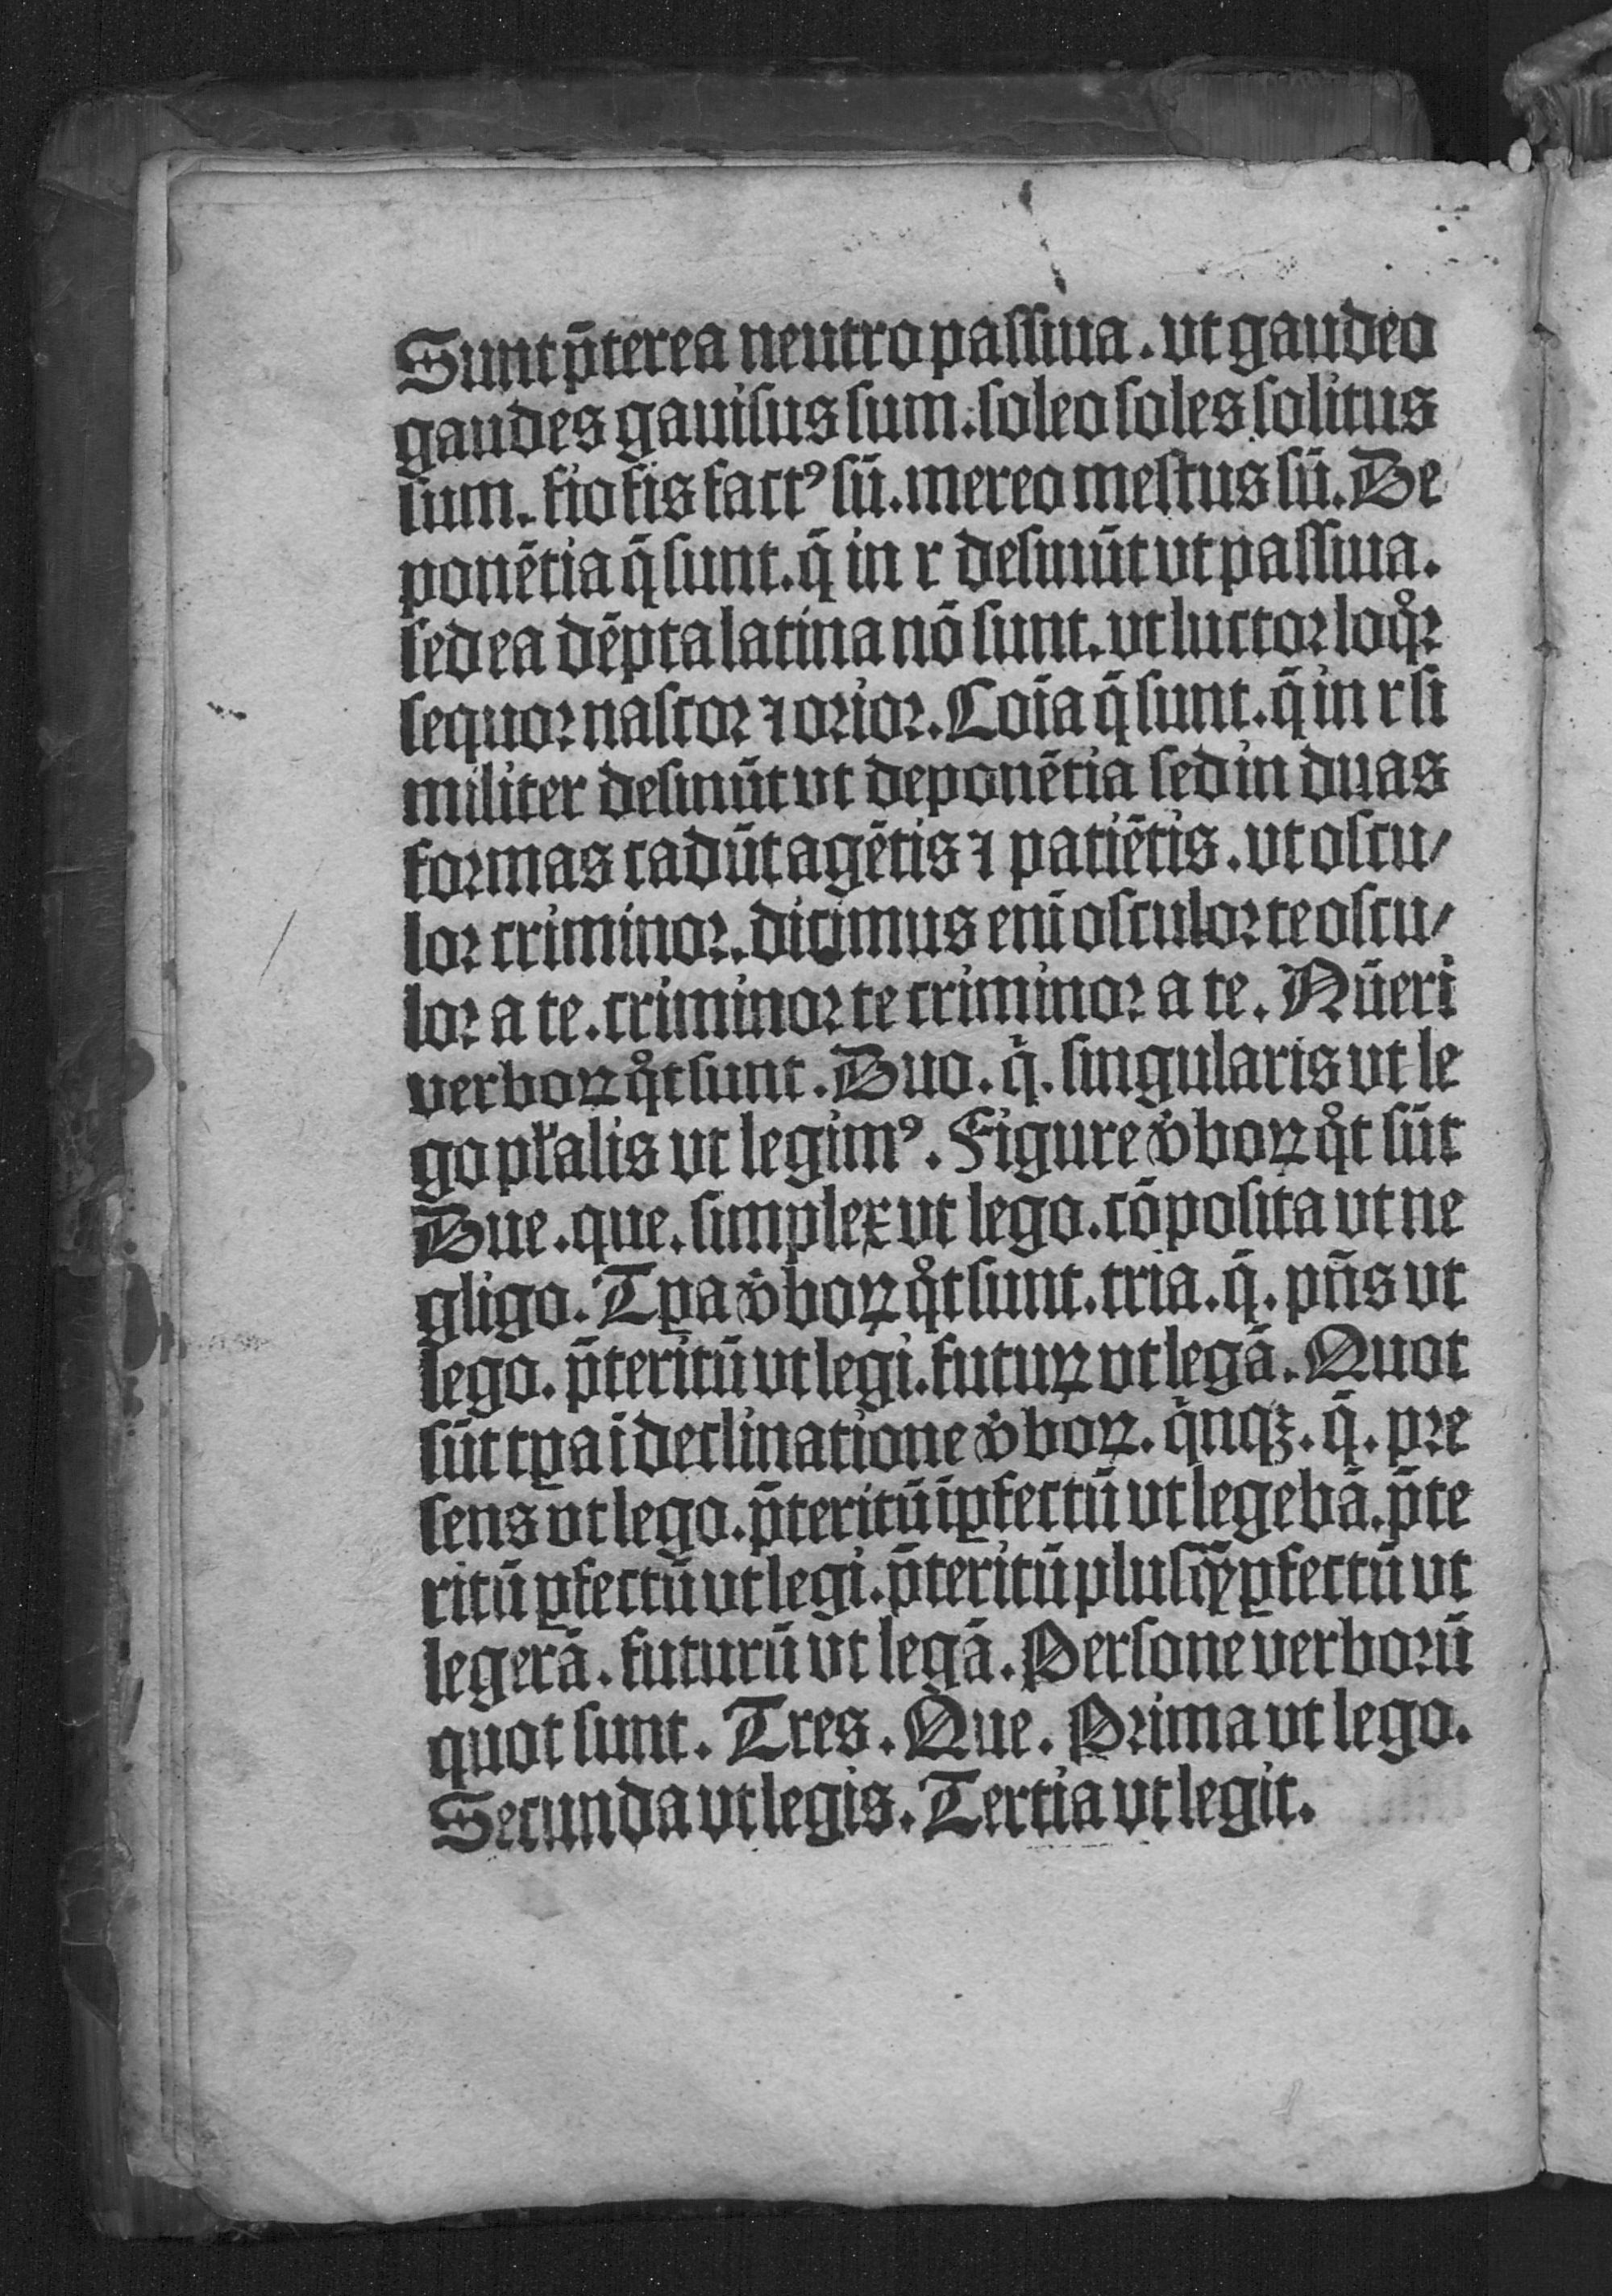 Sunt p̄terea neutro paſſiua. vt gaudeo
gaudes gauiſus ſum. ſoleo ſoles ſolitus
ſum. fio fis factꝰ ſū. mereo meſtus ſū. De
ponētia q̄ ſunt. q̄ in r deſinūt vt paſſiua.
ſed ea dēpta latina nō ſunt. vt luctoꝛ loqͦꝛ
ſequoꝛ naſcoꝛ ⁊ oꝛioꝛ. Coīa q̄ ſunt. q̄ in r ſi
militer deſinūt vt deponētia ſed in duas
foꝛmas cadūt agētis ⁊ patiētis. vt oſcu/
loꝛ criminoꝛ. dicimus eni̅ oſculoꝛ te oſcu/
loꝛ a te. criminoꝛ te criminoꝛ a te. Nūeri
verboꝝ qͦt ſunt. Duo. q̇. ſingularis vt le
go pl̓alis vt legimꝰ. Figure v̓boꝝ qͦt ſūt
Due. que. ſimplex vt lego. cōpoſita vt ne
gligo. Tꝑa v̓boꝝ qͦt ſunt. tria. q̄. pn̄s vt
lego. p̄teritū vt legi. futuꝝ vt legā. Quot
ſūt tꝑa ī declinatione v̓boꝝ. qͥnqꝫ. q̄. pꝛe
ſens vt lego. p̄teritū īꝑfectū vt legebā. p̄te
ritū ꝑfectū vt legi. p̄teritū pluſꝙꝑfectū vt
legerā. futurū vt legā. Perſone verboꝛū
quot ſunt. Tres. Que. Pꝛima vt lego.
Secunda vt legis. Tertia vt legit.